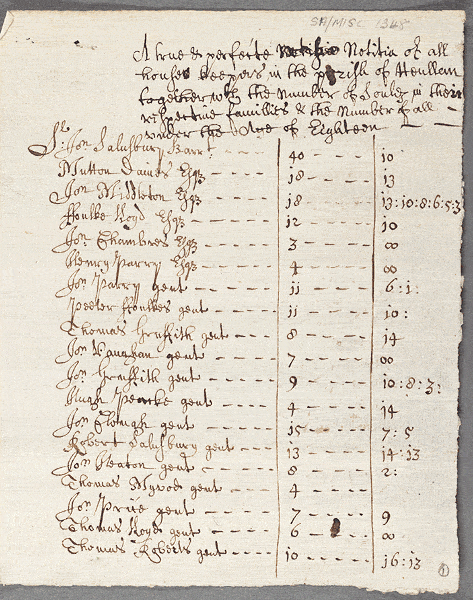 SA/MISC 1348
A true & perfecte Notitia of all
house keepers in the parish of Henllan
together wth the Number of Soules in their
respective families & the Number of all
under the Age of Eighteen
Sr: Jon Salusbury Barrt - - - 40 - - - - 10
Mutton Davies Esqr - - - 18 - - - - 13
Jon Middleton Esqr - - - 18 - - - - 13:10:8:6:5:3
ffoulke lloyd Esqr - - - 12 - - - - 10
Jon Chambres Esqr - - - 3 - - - - 00
Henry Parry Esqr - - - 4 - - - - 00
Jon Parry gent - - - 11 - - - - 6:1:
Peeter ffoulkes gent - - - 11 - - - - 10:
Thomas Gruffith gent - - - 8 - - - - 14
Jon Vaughan gent - - - 7 - - - - 00
Jon Gruffith gent - - - 9 - - - - 10:8:3:
Hugh Peacke gent - - - 4 - - - - 14
Jon Clough gent - - - 15 - - - - 7:5
Robert Salusbury gent - - - 13 - - - - 14:13
Jon Heaton gent - - - 8 - - - - 2:
Thomas gent - - - 4 - - - -
Jon Price gent - - - 7 - - - - 9
Thomas lloyd gent - - - 6 - - - - 00
Thomas Roberts gent - - - 10 - - - - 16:13
1